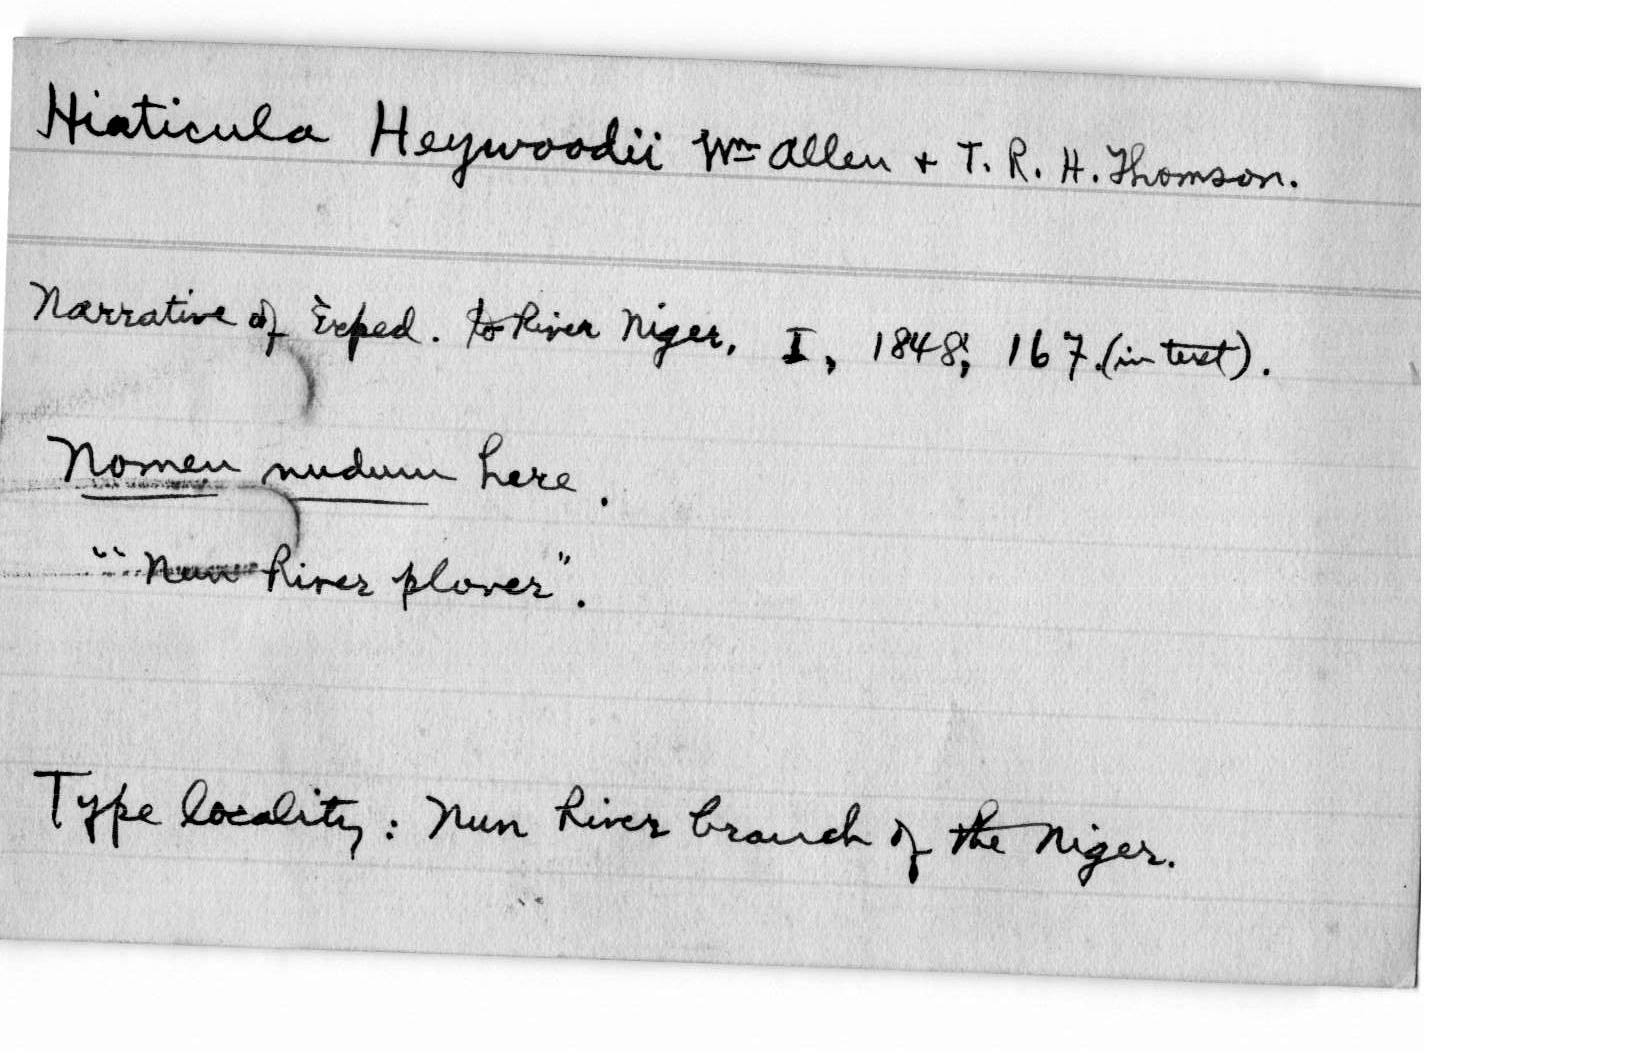 Hiaticula Heywoodii Wm Allen + T. R. H. Thomson.
Narrative of Exped. to River Niger, I, 1848, 167. (in text).
Nomen nudum here.
"Nun River plover".
Type locality: Nun River branch of the Niger.